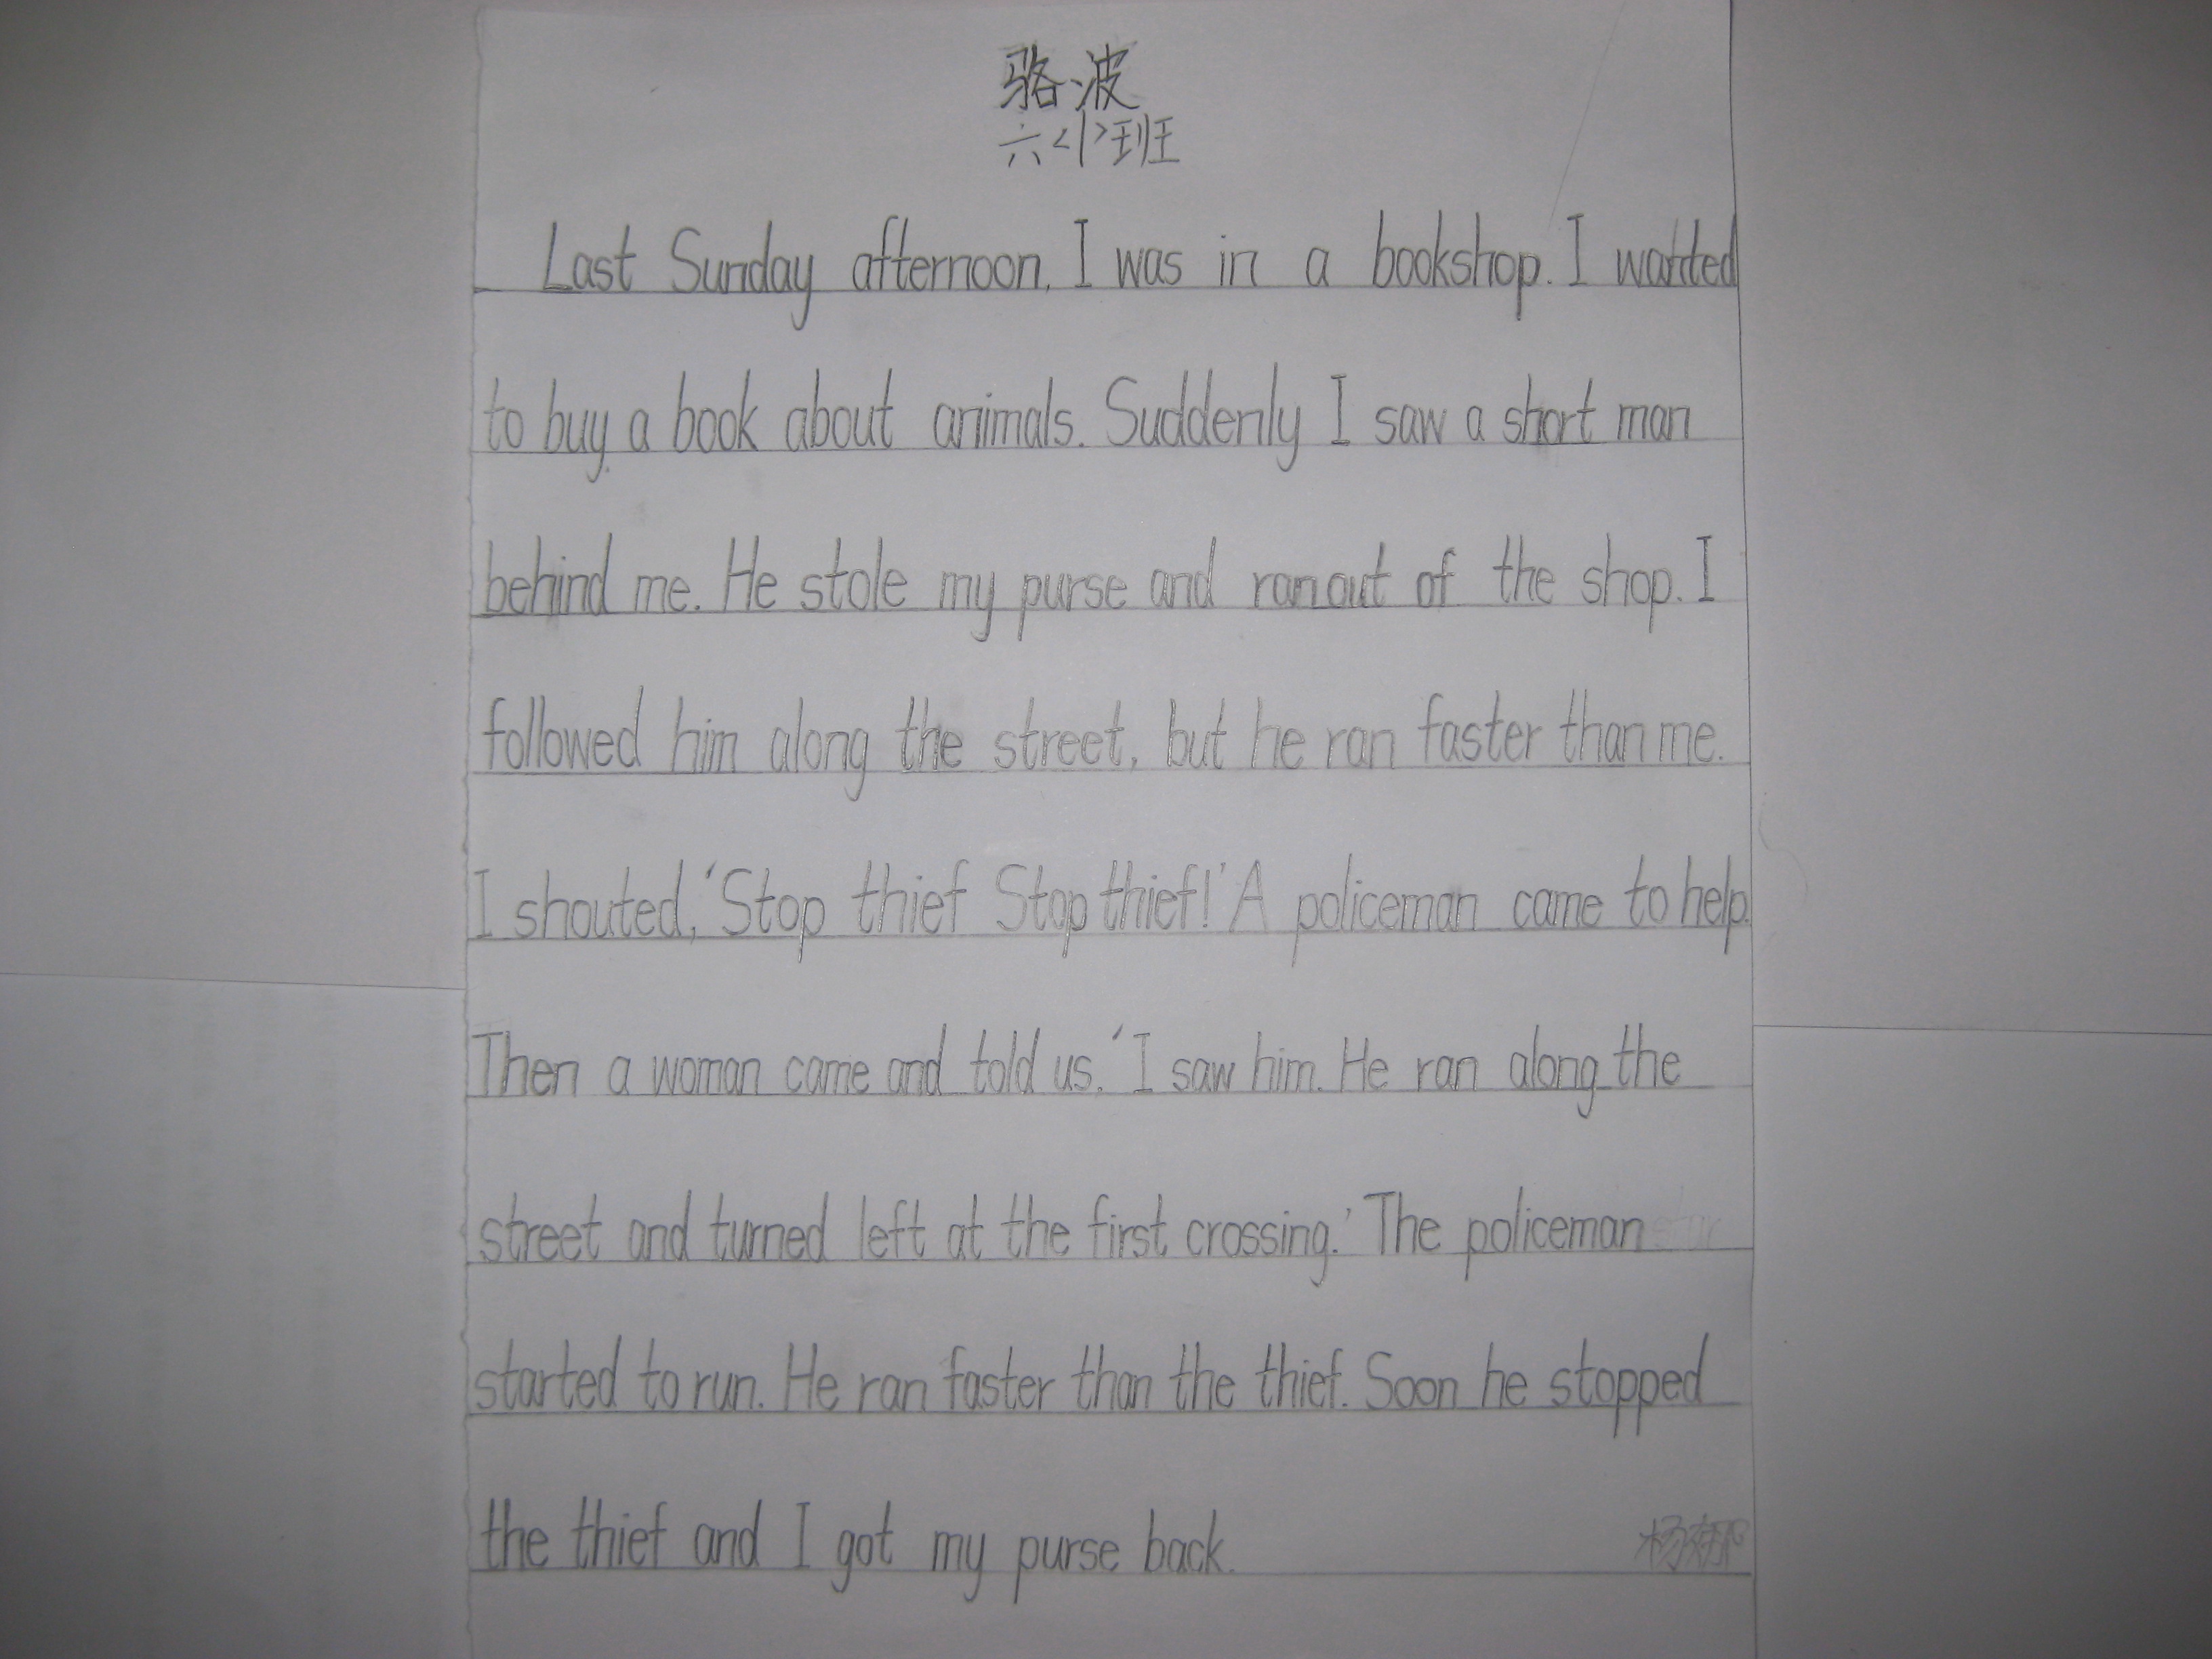 骆波
六<1>班
Last Sunday afternoon, I was in a bookshop. I wanted
to buy a book about animals. Suddenly I saw a short man
behind me. He stole my purse and ran out of the shop. I
followed him along the street, but he ran faster than me.
I shouted, 'Stop thief Stop thief!' A policeman came to help.
Then a woman came and told us, 'I saw him. He ran along the
street and turned left at the first crossing.' The policeman
started to run. He ran faster than the thief. Soon he stopped
the thief and I got my purse back. 杨娜